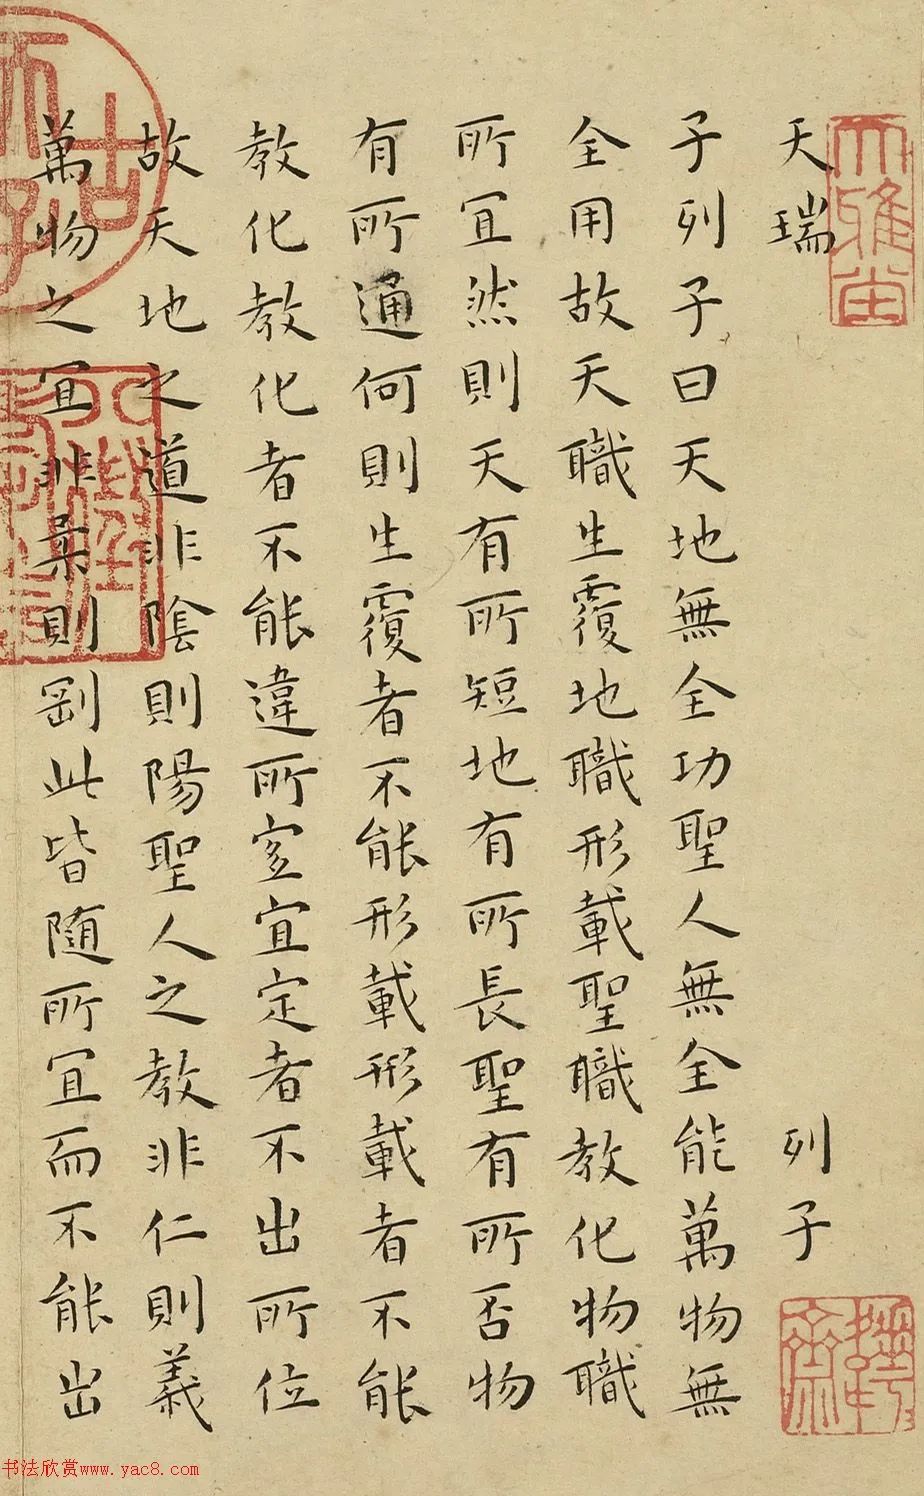 天瑞 列子
子列子曰天地無全功聖人無全能萬物無
全用故天職生覆地職形載聖職教化物職
所宜然則天有所短地有所長聖有所否物
有所通何則生覆者不能形載形載者不能
教化教化者不能違所宜宜定者不出所位
故天地之道非陰則陽聖人之教非仁則義
萬物之宜非柔則剛此皆随所宜而不能出
大雅堂
古
书法欣赏www.yac8.com